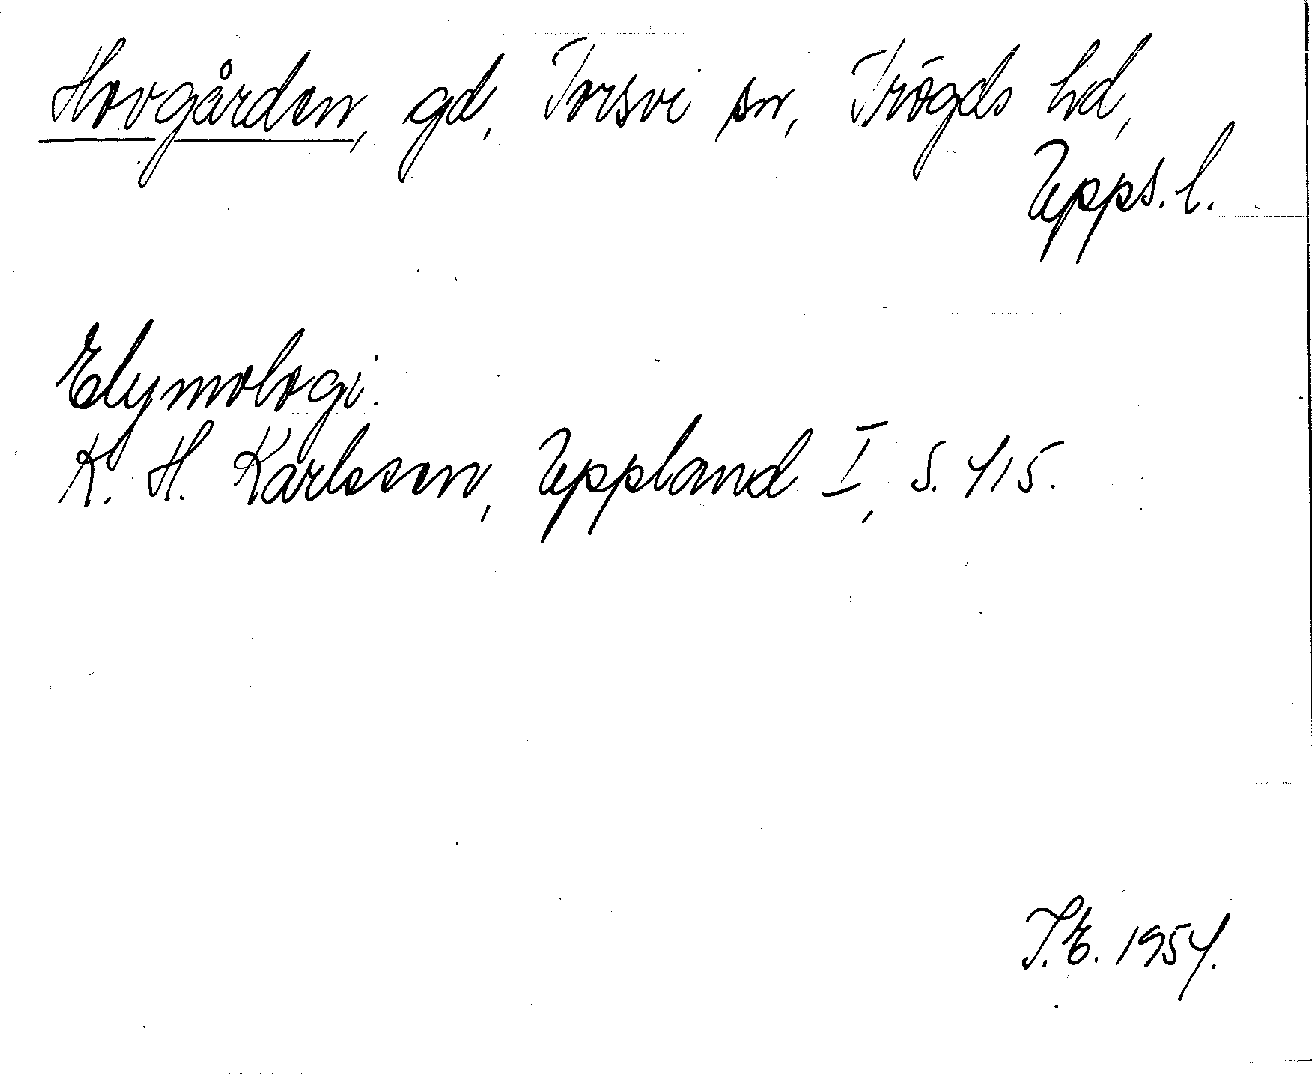 Hovgården, gd, Torsvi sn, Trögds hd,
Upps. l.
Etymologi.
K. H. Karlsson, Uppland I, s. 415.
I.E. 1954.